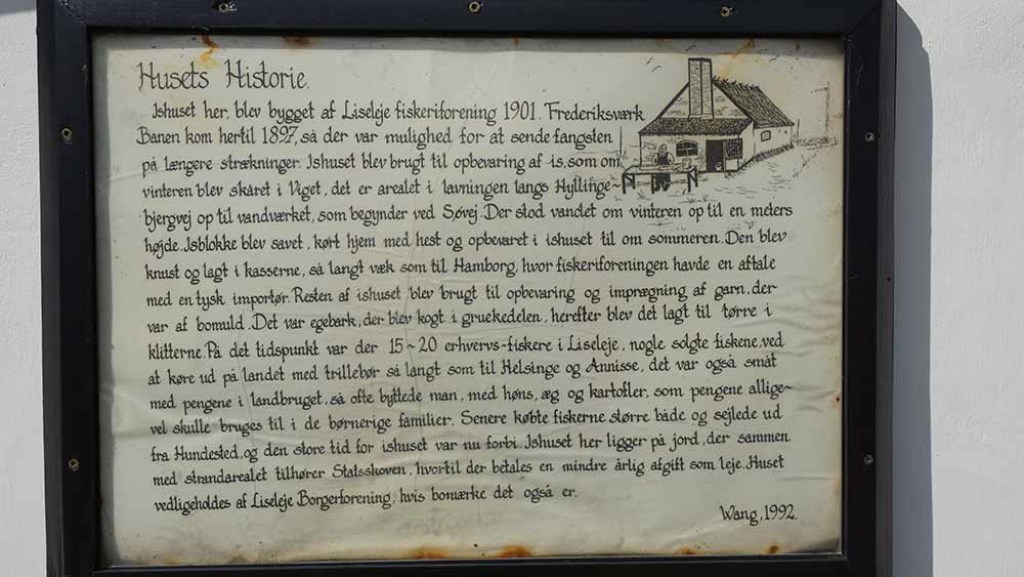 Husets Historie.
Ishuset her, blev bygget af Liseleje fiskeriforening 1901. Frederiksværk
Banen kom hertil 1897, så der var mulighed for at sende fangsten
på længere strækninger. Ishuset blev brugt til opbevaring af is, som om
vinteren blev skåret i Viget, det er arealet i lavningen langs Hyllinge-
bjergvej op til vandværket, som begynder ved Søvej. Der stod vandet om vinteren op til en meters
højde. Isblokke blev savet, kørt hjem med hest og opbevaret i ishuset til om sommeren. Den blev
knust og lagt i kasserne, så langt væk som til Hamborg, hvor fiskeriforeningen havde en aftale
med en tysk importør. Resten af ishuset blev brugt til opbevaring og imprægning af garn, der
var af bomuld. Det var egebark, der blev kogt i gruekedelen, herefter blev det lagt til tørre i
klitterne. På det tidspunkt var der 15~20 erhvervs-fiskere i Liseleje, nogle solgte fiskene, ved
at køre ud på landet med trillebør så langt som til Helsinge og Annisse, det var også småt
med pengene i landbruget, så ofte byttede man, med høns, æg og kartofler, som pengene allige-
vel skulle bruges til i de børnerige familier. Senere købte fiskerne større både og sejlede ud
fra Hundested, og den store tid for ishuset var nu forbi. Ishuset her ligger på jord, der sammen
med strandarealet tilhører Statsskoven, hvortil der betales en mindre årlig afgift som leje. Huset
vedligeholdes af Liseleje Borgerforening, hvis bomærke det også er.
Wang, 1992.